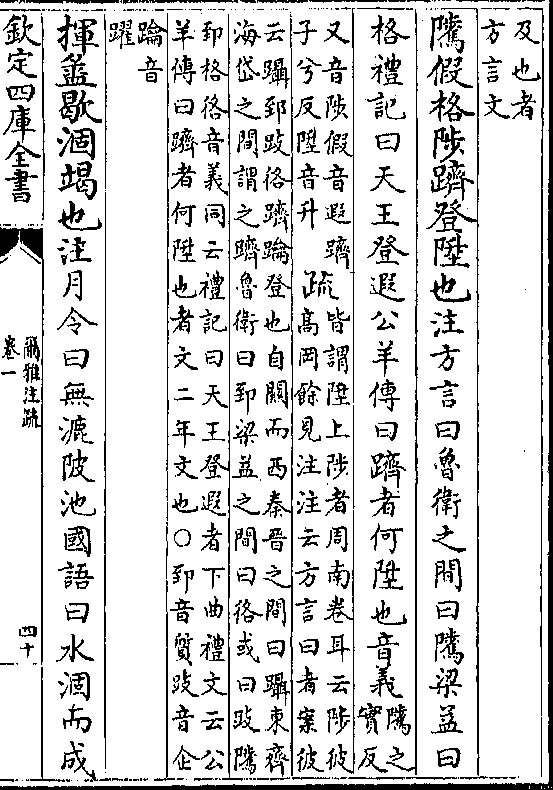 及也者
方言文
隲假格陟躋登陞也注方言曰魯衛之間曰隲梁益曰
格禮記曰天王登遐公羊傳曰躋者何陞也音義隲之
實反
又音陟假音遐躋
子兮反陞音升
疏皆謂陞上陟者周南卷耳云陟彼
高岡餘見注注云方言曰者案彼
云躡郅跂㣟躋踚登也自關而西秦晉之間曰躡東齊
海岱之間謂之躋魯衛曰郅梁益之間曰㣟或曰跂隲
郅格㣟音義同云禮記曰天王登遐者下曲禮文云公
羊傳曰躋者何陞也者文二年文也○郅音質跂音企
踚音
躍
揮盝歇涸竭也注月令曰無漉陂池國語曰水涸而成
欽定四庫全書
爾雅注疏
卷一
四十